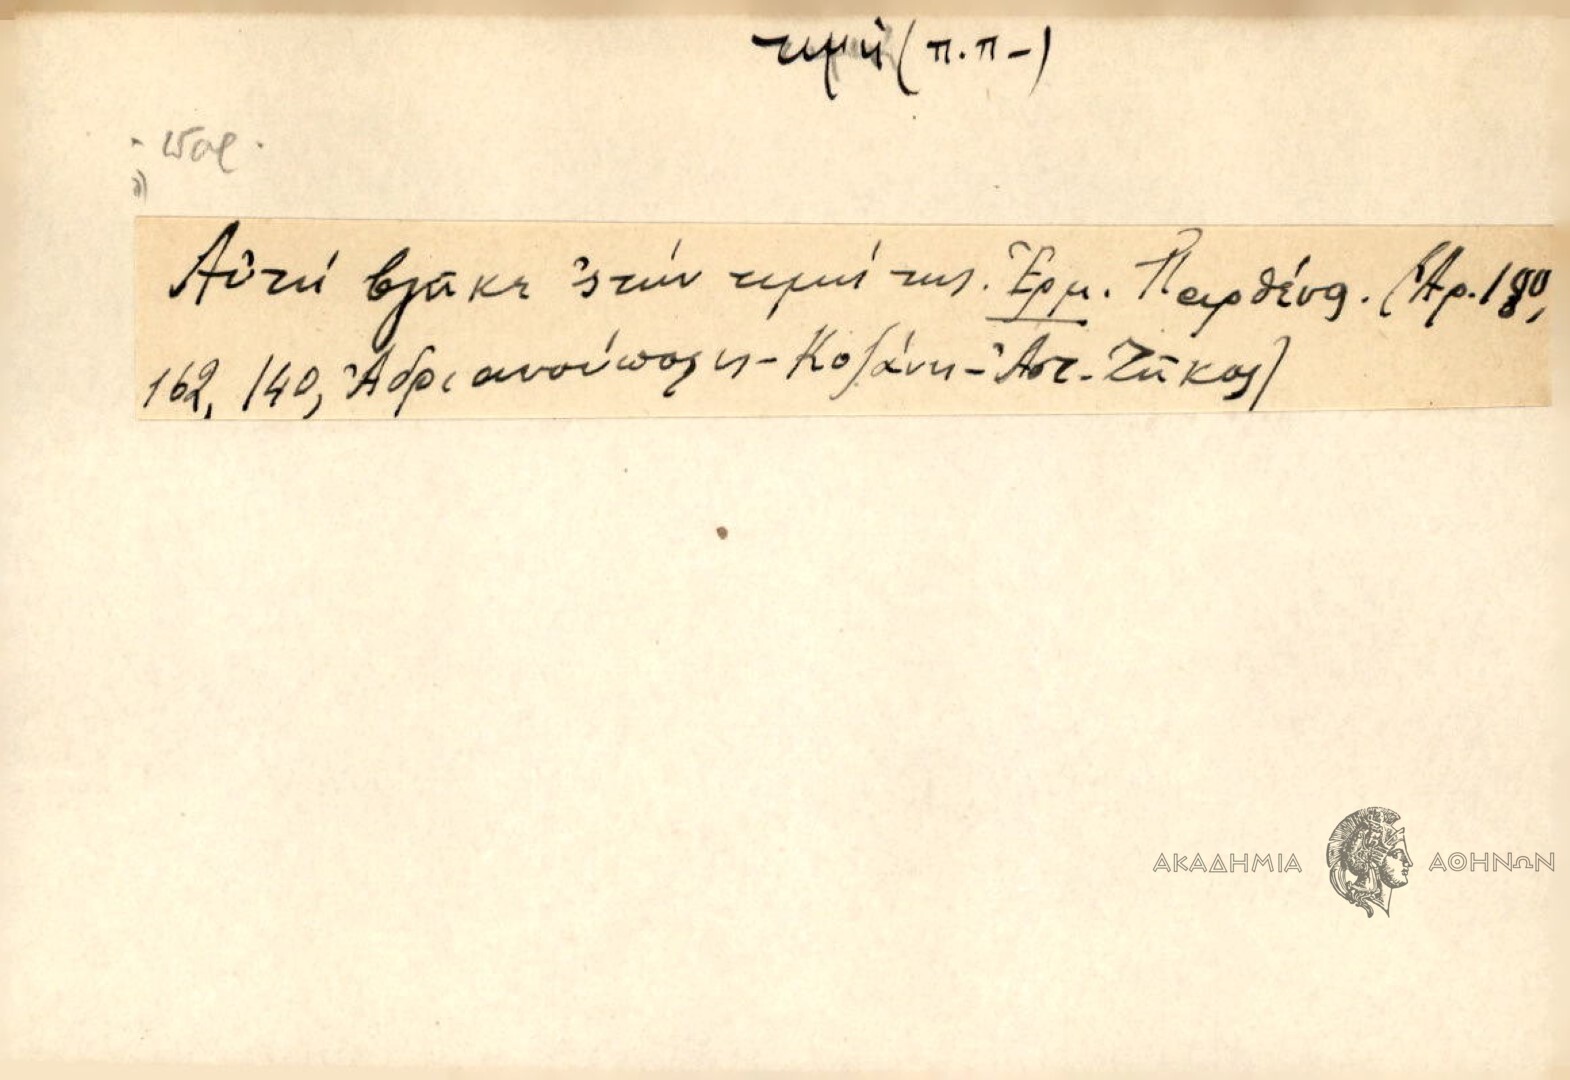 τιμή (π.π-)
παρ.
Αὐτὴ βγῆκε 'ς τὴν τιμή της. Ἑρμ. Παρθένα. (Ἀρ. 180,
162, 140, Ἀδριανούπολις - Κοζάνη - Ἀστ. Ζῆκος)
ΑΚΑΔΗΜΙΑ ΑΘΗΝΩΝ